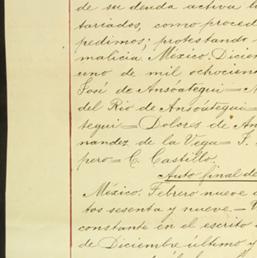 de su deuda activa t
tariados, como proced
pedimos; protestando
malicia. México. Diciem
uno de mil ochocien
José de Ansoategui = M
del Rio de Ansoategui
tegui = Dolores de An
nandez de la Vega = F.
pero = C. Castillo.
Auto final de
México. Febrero nueve d
tos sesenta y nueve = V
constante en el escrito d
de Diciembre último y